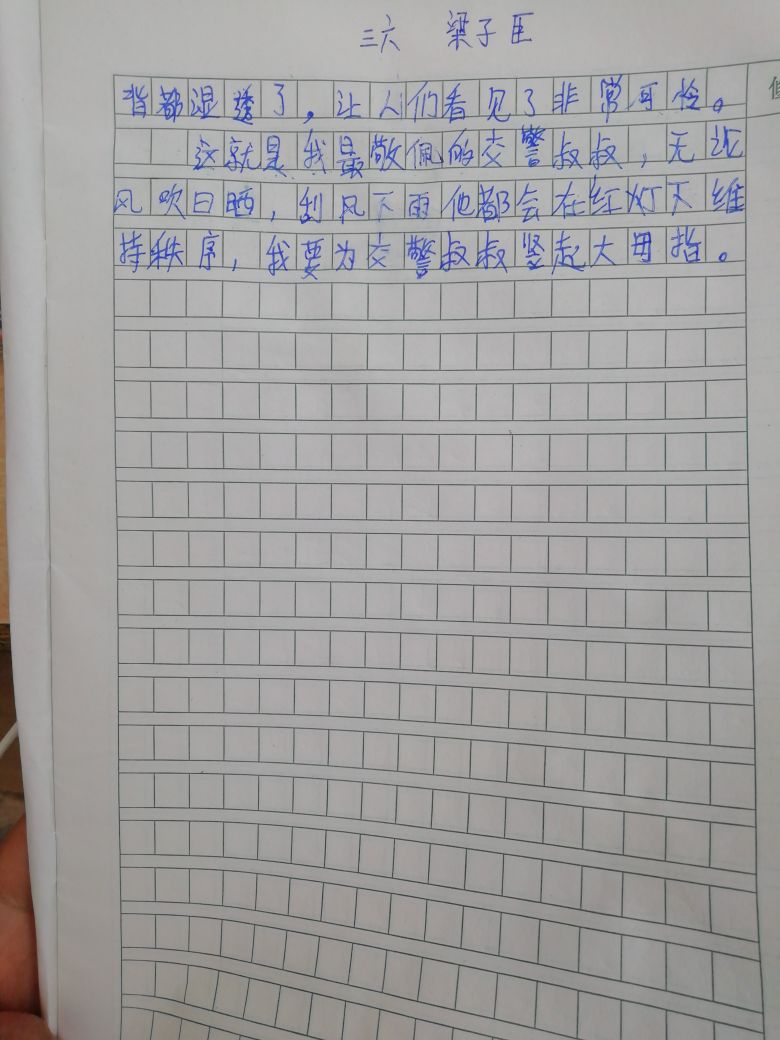 三六 梁子臣
背都湿透了，让人们看见了非常可怜。
这就是我最敬佩的交警叔叔，无论
风吹日晒，刮风下雨他都会在红灯下维
持秩序，我要为交警叔叔竖起大母指。